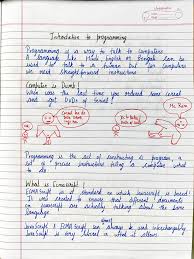 Introduction to programming
Programming is a way to talk to computers
A language like Hindi English or Bengali can be
used to talk to a human but for computers
we need straightforward instructions
Computer is Dumb!
When was the last time you ordered some cereal
and got DVDs of Serial?
Programming is the act of constructing a program, a
set of precise instructions telling a computer what
to do
What is EcmaScript?
ECMAScript is a standard on which Javascript is based!
It was created to ensure that different documents
on javascript are actually talking about the same
language
JavaScript & ECMAScript can always be used interchangeably
JavaScript is very liberal in what it allows